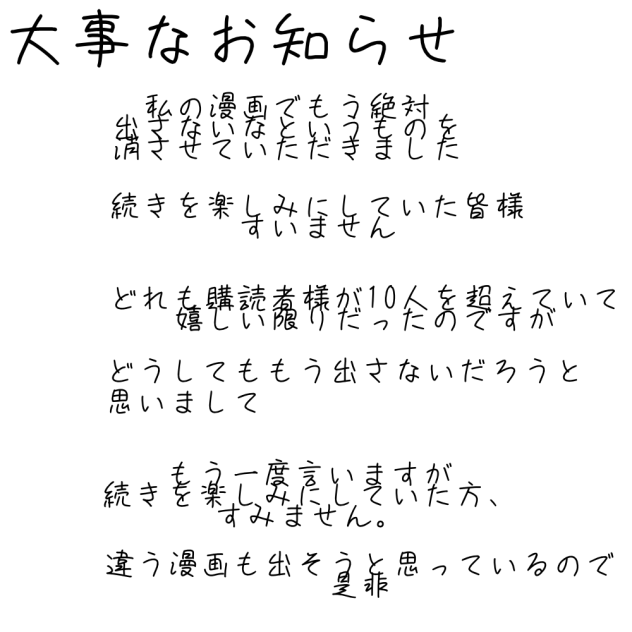 大事なお知らせ
私の漫画でもう絶対
出さないなというものを
消させていただきました
続きを楽しみにしていた皆様
すいません
どれも購読者様が10人を超えていて
嬉しい限りだったのですが
どうしてももう出さないだろうと
思いまして
もう一度言いますが
続きを楽しみにしていた方、
すみません。
違う漫画も出そうと思っているので
是非